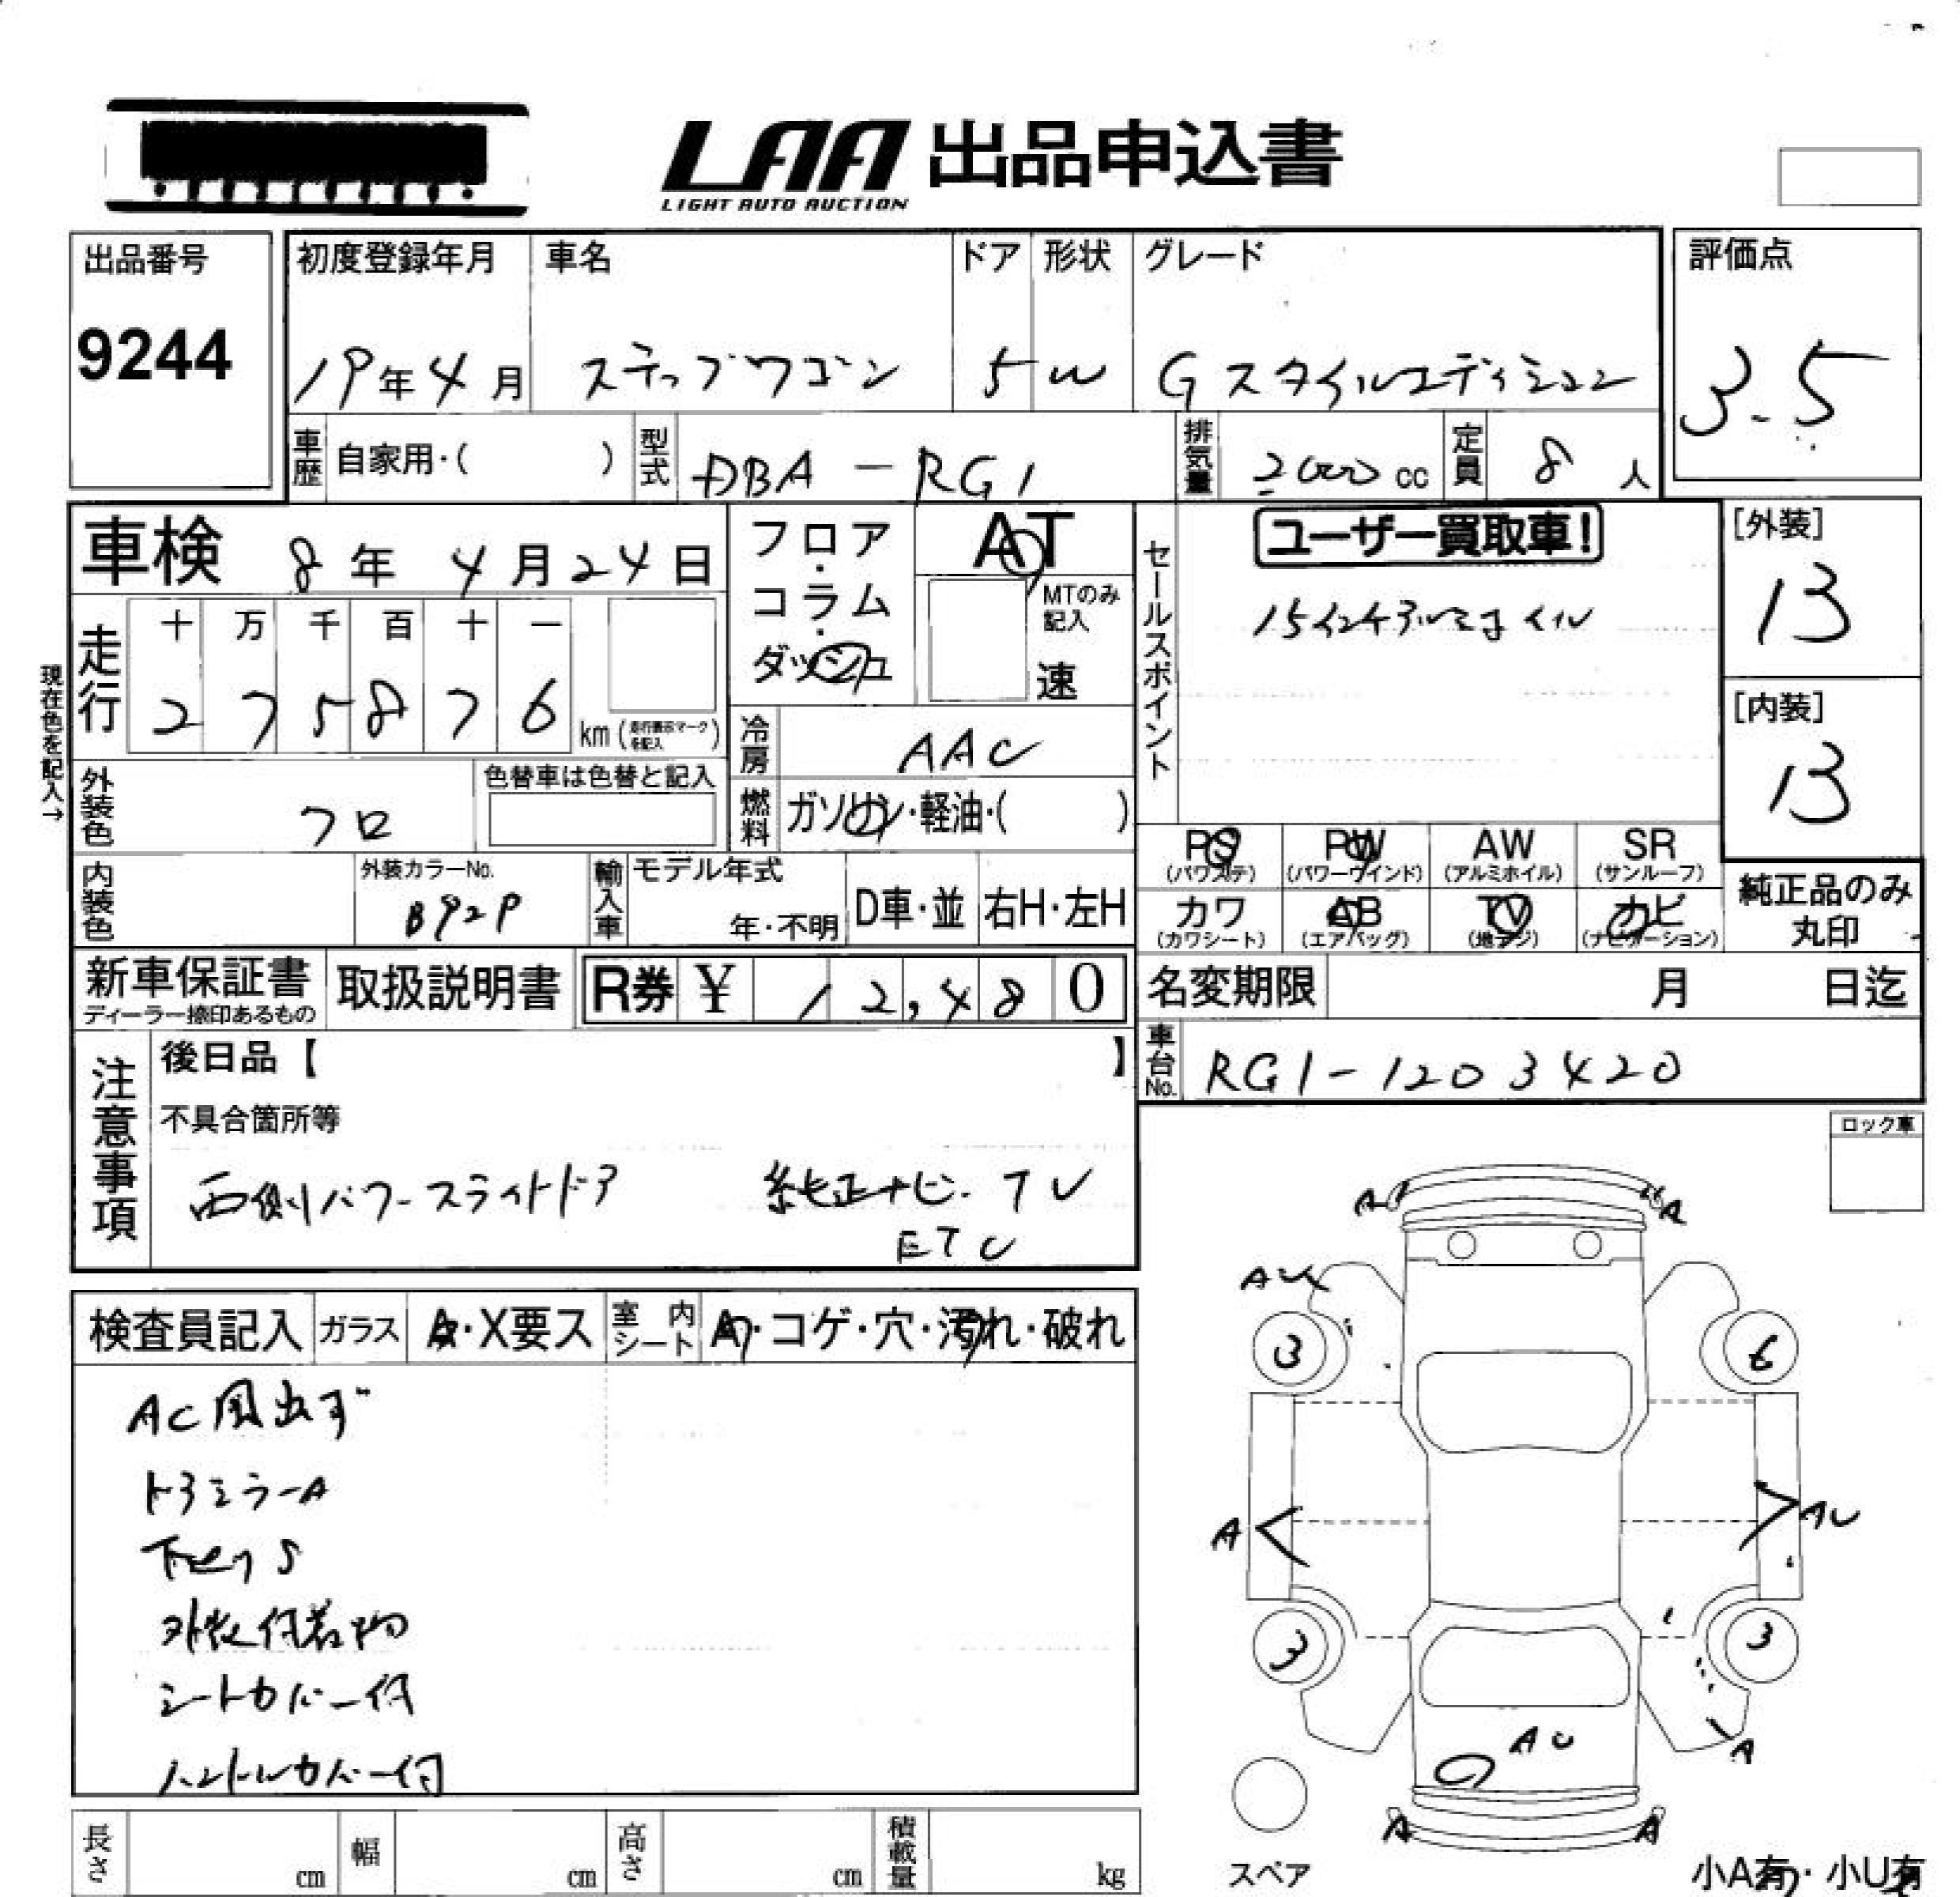 LAA 出品申込書
LIGHT AUTO AUCTION
出品番号
9244
初度登録年月
19年4月
車名
ステップワゴン
ドア
5
形状
W
グレード
Gスタイルエディション
評価点
3.5
車歴 自家用・( )
型式 DBA-RG1
排気量 2000cc
定員 8人
車検 8年4月24日
フロア・コラム・ダッシュ
AT
MTのみ記入
速
セールスポイント
ユーザー買取車!
15インチアルミホイル
[外装]
13
[内装]
13
現在色を記入→
走行
十 万 千 百 十 一
2 7 5 8 7 6 km(走行表示マークを記入)
冷房 AAC
外装色 クロ
色替車は色替と記入
燃料 ガソリン・軽油・( )
内装色
外装カラーNo.
B92P
輸入車
モデル年式
年・不明
D車・並
右H・左H
PS
(パワステ)
PW
(パワーウインド)
AW
(アルミホイル)
SR
(サンルーフ)
カワ
(カワシート)
AB
(エアバッグ)
TV
(地デジ)
ナビ
(ナビゲーション)
純正品のみ
丸印
新車保証書
ディーラー捺印あるもの
取扱説明書
R券 ¥ 12,480
名変期限 月 日迄
車台No. RG1-1203420
注意事項
後日品【 】
不具合箇所等
両側パワースライドドア 純正ナビ・TV
ETC
ロック車
検査員記入
ガラス A・X要ス
室内シート A・コゲ・穴・汚れ・破れ
AC風出ず
ドアミラーA
下回りS
外装付着物
シートカバー付
ハンドルカバー付
A A
AU
3 6
A AU
3 3
AU
A
A A
スペア
小A有・小U有
長さ cm
幅 cm
高さ cm
積載量 kg